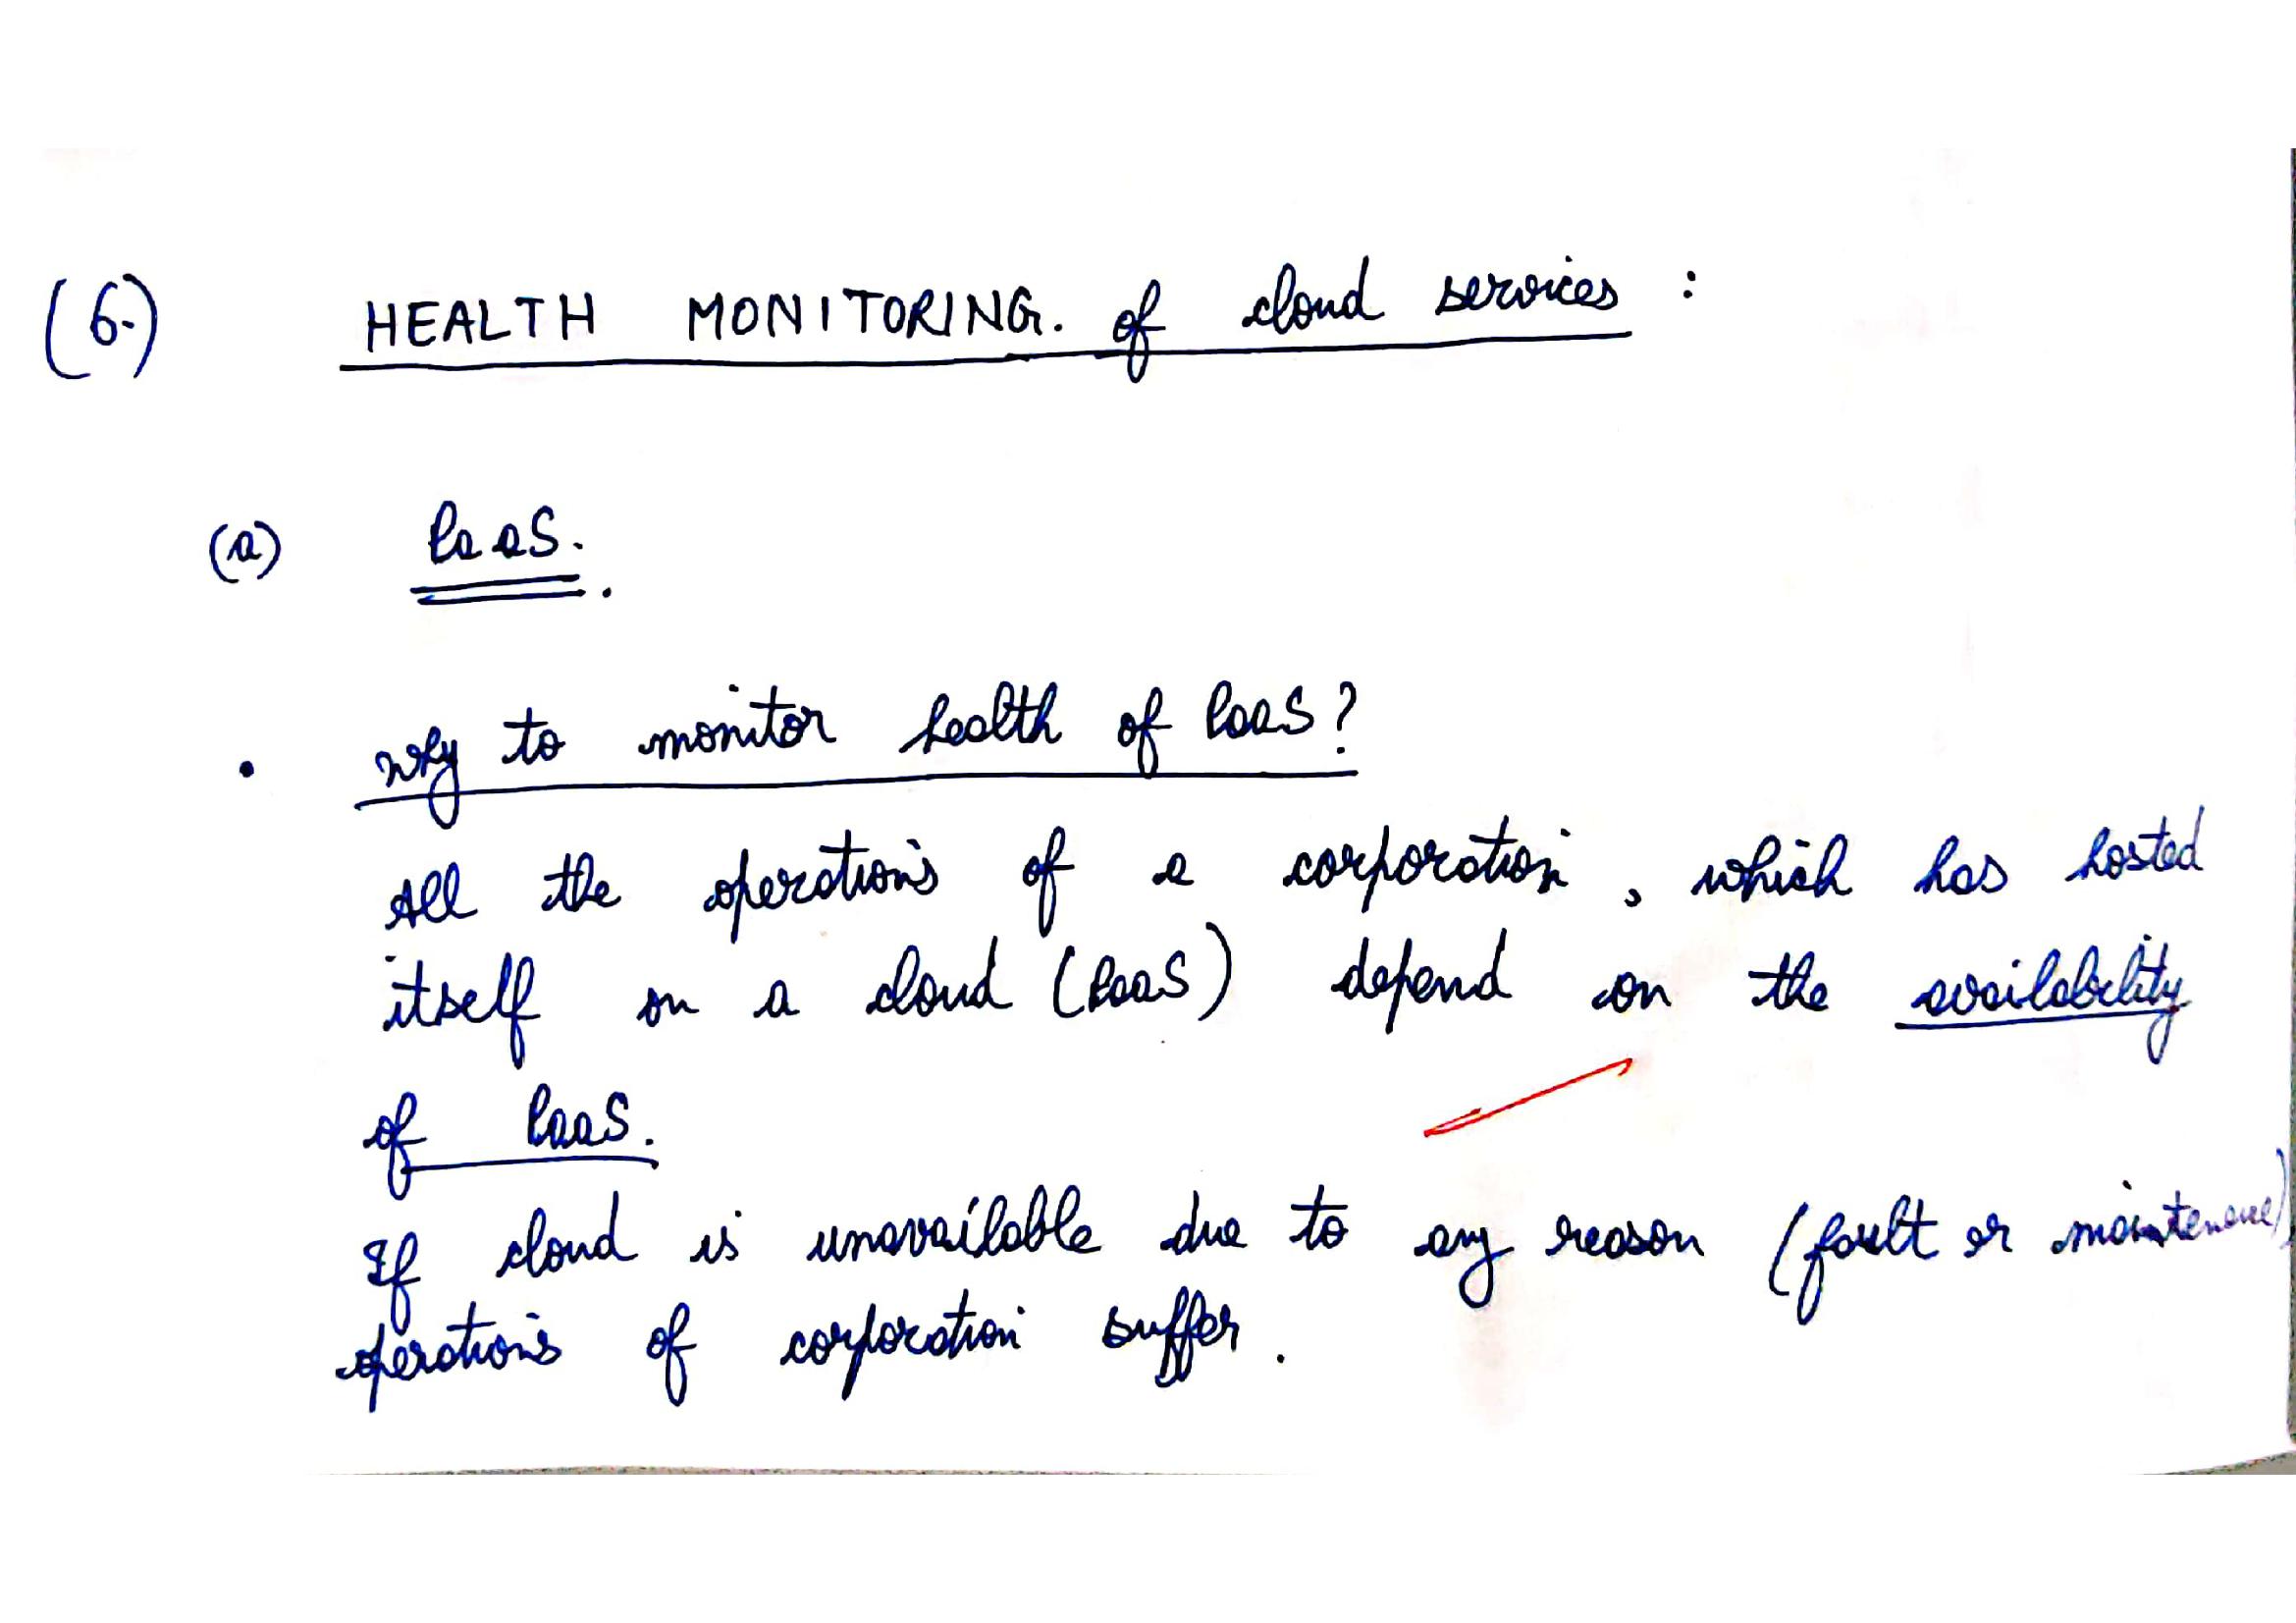 (6.) HEALTH MONITORING. of cloud services :
(a) PaaS.
• Why to monitor health of PaaS?
All the operations of a corporation, which has hosted
itself on a cloud (PaaS) depend on the availability
of PaaS.
If cloud is unavailable due to any reason (fault or maintenance),
operations of corporation suffer.